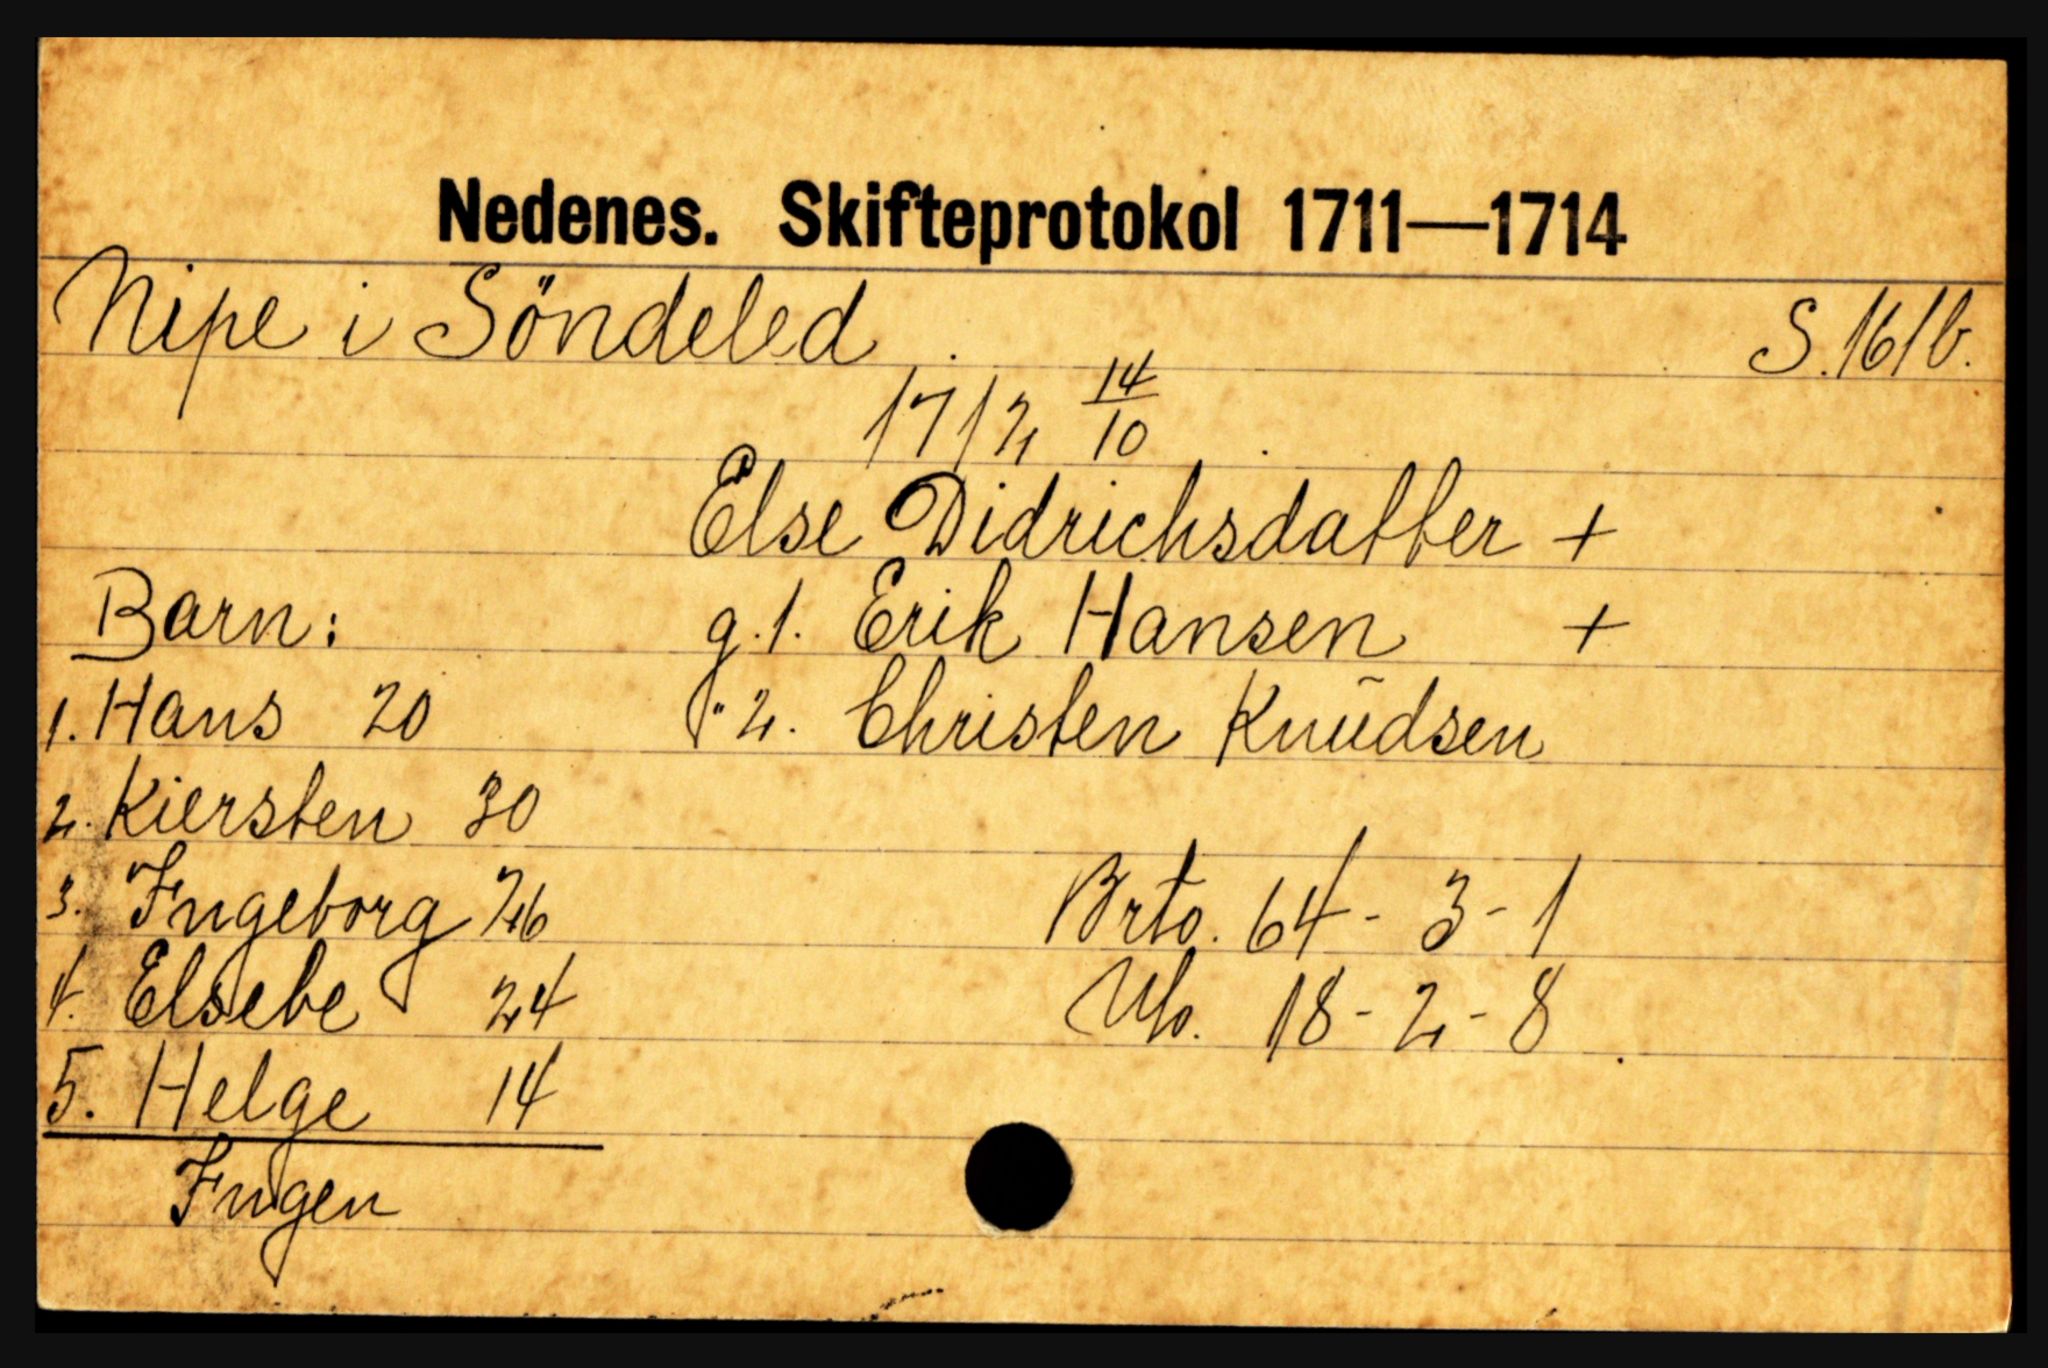 Nedenes. Skifteprotokol 1711—1714
Nipe i Söndeled S. 161b.
1712 14/10
Else Didrichsdatter +
Barn: g. 1. Erik Hansen +
1. Hans 20 " 2. Christen Knudsen
2. Kiersten 30
3. Ingeborg 26 Brto. 64 - 3 - 1
4. Elsebe 24 Nto. 18 - 2 - 8
5. Helge 14
Ingen